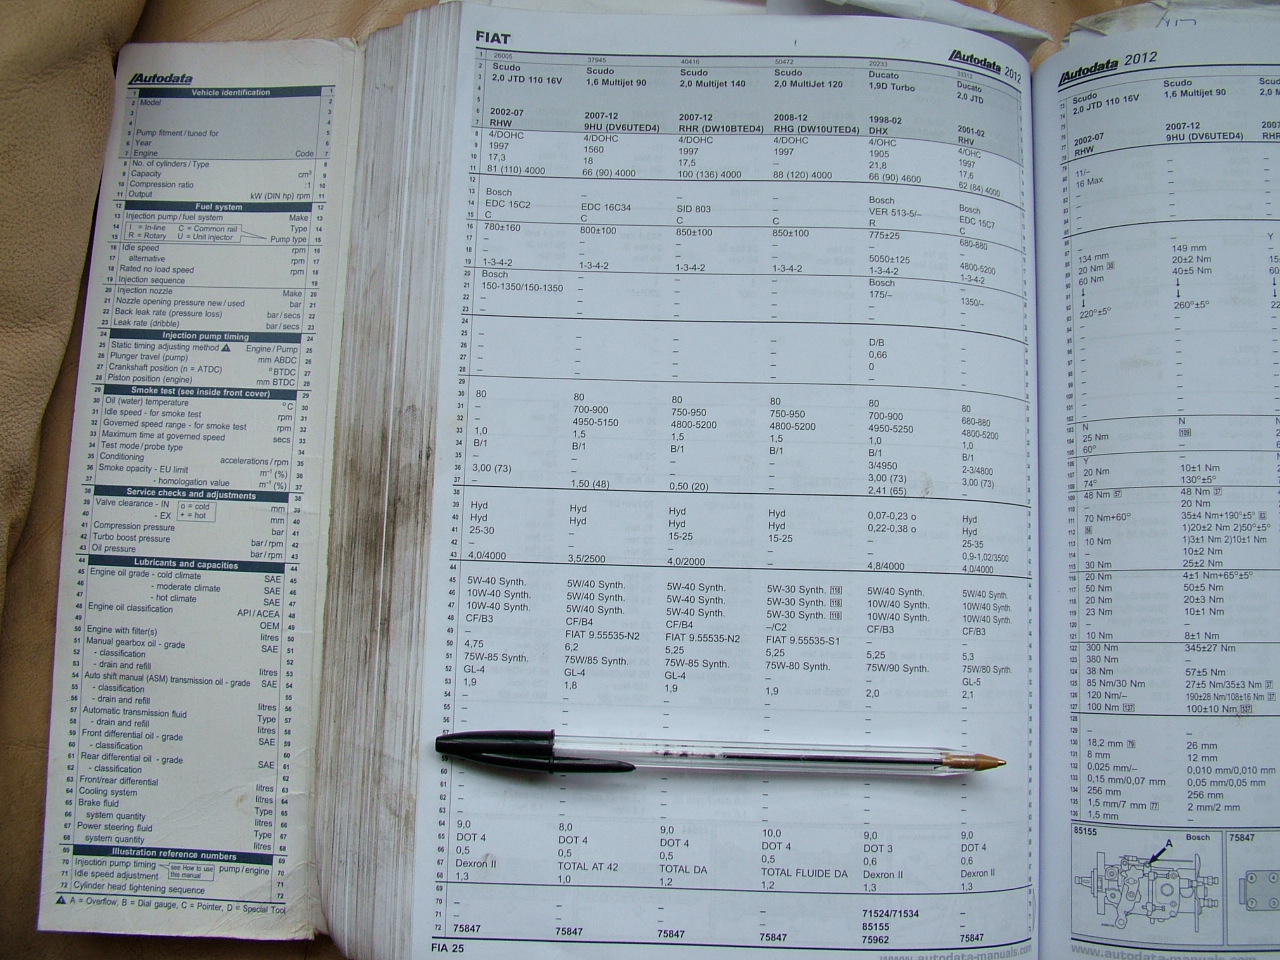 Autodata
1 Vehicle identification 1
2 Model
3 3
4 4
5 Pump fitment / tuned for 5
6 Year 6
7 Engine Code 7
8 No. of cylinders / Type 8
9 Capacity cm³ 9
10 Compression ratio :1 10
11 Output kW (DIN hp) rpm 11
12 Fuel system 12
13 Injection pump / fuel system Make 13
14 I = In-line C = Common rail Type 14
15 R = Rotary U = Unit injector Pump type 15
16 Idle speed rpm 16
17 alternative rpm 17
18 Rated no load speed rpm 18
19 Injection sequence 19
20 Injection nozzle Make 20
21 Nozzle opening pressure new / used bar 21
22 Back leak rate (pressure loss) bar / secs 22
23 Leak rate (dribble) bar / secs 23
24 Injection pump timing 24
25 Static timing adjusting method Engine / Pump 25
26 Plunger travel (pump) mm ABDC 26
27 Crankshaft position (n = ATDC) °BTDC 27
28 Piston position (engine) mm BTDC 28
29 Smoke test (see inside front cover) 29
30 Oil (water) temperature °C 30
31 Idle speed - for smoke test rpm 31
32 Governed speed range - for smoke test rpm 32
33 Maximum time at governed speed secs 33
34 Test mode / probe type 34
35 Conditioning accelerations / rpm 35
36 Smoke opacity - EU limit m⁻¹ (%) 36
37 - homologation value m⁻¹ (%) 37
38 Service checks and adjustments 38
39 Valve clearance - IN o = cold mm 39
40 - EX + = hot mm 40
41 Compression pressure bar 41
42 Turbo boost pressure bar / rpm 42
43 Oil pressure bar / rpm 43
44 Lubricants and capacities 44
45 Engine oil grade - cold climate SAE 45
46 - moderate climate SAE 46
47 - hot climate SAE 47
48 Engine oil classification API / ACEA 48
49 OEM 49
50 Engine with filter(s) litres 50
51 Manual gearbox oil - grade SAE 51
52 - classification 52
53 - drain and refill litres 53
54 Auto shift manual (ASM) transmission oil - grade SAE 54
55 - classification 55
56 - drain and refill litres 56
57 Automatic transmission fluid Type 57
58 - drain and refill litres 58
59 Front differential oil - grade SAE 59
60 - classification 60
61 Rear differential oil - grade SAE 61
62 - classification 62
63 Front/rear differential litres 63
64 Cooling system litres 64
65 Brake fluid Type 65
66 system quantity litres 66
67 Power steering fluid Type 67
68 system quantity litres 68
69 Illustration reference numbers 69
70 Injection pump timing see How to use this manual pump / engine 70
71 Idle speed adjustment 71
72 Cylinder head tightening sequence 72
A = Overflow, B = Dial gauge, C = Pointer, D = Special Tool
FIAT
Autodata 2012
1 26005 37945 40416 50472 20233 33312
2 Scudo Scudo Scudo Scudo Ducato Ducato
3 2,0 JTD 110 16V 1,6 Multijet 90 2,0 Multijet 140 2,0 MultiJet 120 1,9D Turbo 2,0 JTD
6 2002-07 2007-12 2007-12 2008-12 1998-02 2001-02
7 RHW 9HU (DV6UTED4) RHR (DW10BTED4) RHG (DW10UTED4) DHX RHV
8 4/DOHC 4/DOHC 4/DOHC 4/DOHC 4/OHC 4/OHC
9 1997 1560 1997 1997 1905 1997
10 17,3 18 17,5 – 21,8 17,6
11 81 (110) 4000 66 (90) 4000 100 (136) 4000 88 (120) 4000 66 (90) 4600 62 (84) 4000
12
13 Bosch – – – Bosch Bosch
14 EDC 15C2 EDC 16C34 SID 803 – VER 513-5/– EDC 15C7
15 C C C C R C
16 780±160 800±100 850±100 850±100 775±25 680-880
17 – – – – – –
18 – – – – 5050±125 4800-5200
19 1-3-4-2 1-3-4-2 1-3-4-2 1-3-4-2 1-3-4-2 1-3-4-2
20 Bosch – – – Bosch –
21 150-1350/150-1350 – – – 175/– 1350/–
22 – – – – – –
23 – – – – – –
24
25 – – – – D/B –
26 – – – – 0,66 –
27 – – – – 0 –
28 – – – – – –
29
30 80 80 80 80 80 80
31 – 700-900 750-950 750-950 700-900 680-880
32 – 4950-5150 4800-5200 4800-5200 4950-5250 4800-5200
33 1,0 1,5 1,5 1,5 1,0 1,0
34 B/1 B/1 B/1 B/1 B/1 B/1
35 – – – – 3/4950 2-3/4800
36 3,00 (73) – – – 3,00 (73) 3,00 (73)
37 – 1,50 (48) 0,50 (20) – 2,41 (65) –
38
39 Hyd Hyd Hyd Hyd 0,07-0,23 o Hyd
40 Hyd Hyd Hyd Hyd 0,22-0,38 o Hyd
41 25-30 – 15-25 15-25 – 25-35
42 – – – – – 0,9-1,02/3500
43 4,0/4000 3,5/2500 4,0/2000 – 4,8/4000 4,0/4000
44
45 5W-40 Synth. 5W/40 Synth. 5W-40 Synth. 5W-30 Synth. 118 5W/40 Synth. 5W/40 Synth.
46 10W-40 Synth. 5W/40 Synth. 5W-40 Synth. 5W-30 Synth. 118 10W/40 Synth. 10W/40 Synth.
47 10W-40 Synth. 5W/40 Synth. 5W-40 Synth. 5W-30 Synth. 118 10W/40 Synth. 10W/40 Synth.
48 CF/B3 CF/B4 CF/B4 –/C2 CF/B3 CF/B3
49 – FIAT 9.55535-N2 FIAT 9.55535-N2 FIAT 9.55535-S1 – –
50 4,75 6,2 5,25 5,25 5,25 5,3
51 75W-85 Synth. 75W/85 Synth. 75W-85 Synth. 75W-80 Synth. 75W/90 Synth. 75W/80 Synth.
52 GL-4 GL-4 GL-4 – – GL-5
53 1,9 1,8 1,9 1,9 2,0 2,1
54 – – – – – –
55 – – – – – –
56 – – – – – –
61 – – – – – –
62 – – – – – –
63 – – – – – –
64 9,0 8,0 9,0 10,0 9,0 9,0
65 DOT 4 DOT 4 DOT 4 DOT 4 DOT 3 DOT 4
66 0,5 0,5 0,5 0,5 0,6 0,6
67 Dexron II TOTAL AT 42 TOTAL DA TOTAL FLUIDE DA Dexron II Dexron II
68 1,3 1,0 1,2 1,2 1,3 1,3
69
70 – – – – 71524/71534 –
71 – – – – 85155 –
72 75847 75847 75847 75847 75962 75847
FIA 25
www.autodata-manuals.com
Autodata 2012
Scudo Scudo
2,0 JTD 110 16V 1,6 Multijet 90
2002-07 2007-12
RHW 9HU (DV6UTED4)
11/– –
16 Max –
– 149 mm
134 mm 20±2 Nm
20 Nm 40±5 Nm
60 Nm ↓
↓ ↓
220°±5° 260°±5°
N N
25 Nm 109
60° –
Y Y
20 Nm 10±1 Nm
74° 130°±5°
48 Nm 57 48 Nm 37
– 20 Nm
70 Nm+60° 35±4 Nm+190°±5°
1)20±2 Nm 2)50°±5°
10 Nm 1)3±1 Nm 2)10±1 Nm
– 10±2 Nm
30 Nm 25±2 Nm
20 Nm 4±1 Nm+65°±5°
50 Nm 50±5 Nm
20 Nm 20±3 Nm
23 Nm 10±1 Nm
10 Nm 8±1 Nm
300 Nm 345±27 Nm
380 Nm –
38 Nm 57±5 Nm
85 Nm/30 Nm 27±5 Nm/35±3 Nm 37
120 Nm/– 190±28 Nm/108±16 Nm 37
100 Nm 137 100±10 Nm 137
18,2 mm 79 26 mm
8 mm 12 mm
0,025 mm/– 0,010 mm/0,010 mm
0,15 mm/0,07 mm 0,05 mm/0,05 mm
256 mm 256 mm
1,5 mm/7 mm 77 2 mm/2 mm
1,5 mm –
85155 Bosch 75847
A
www.autodata-manuals.com